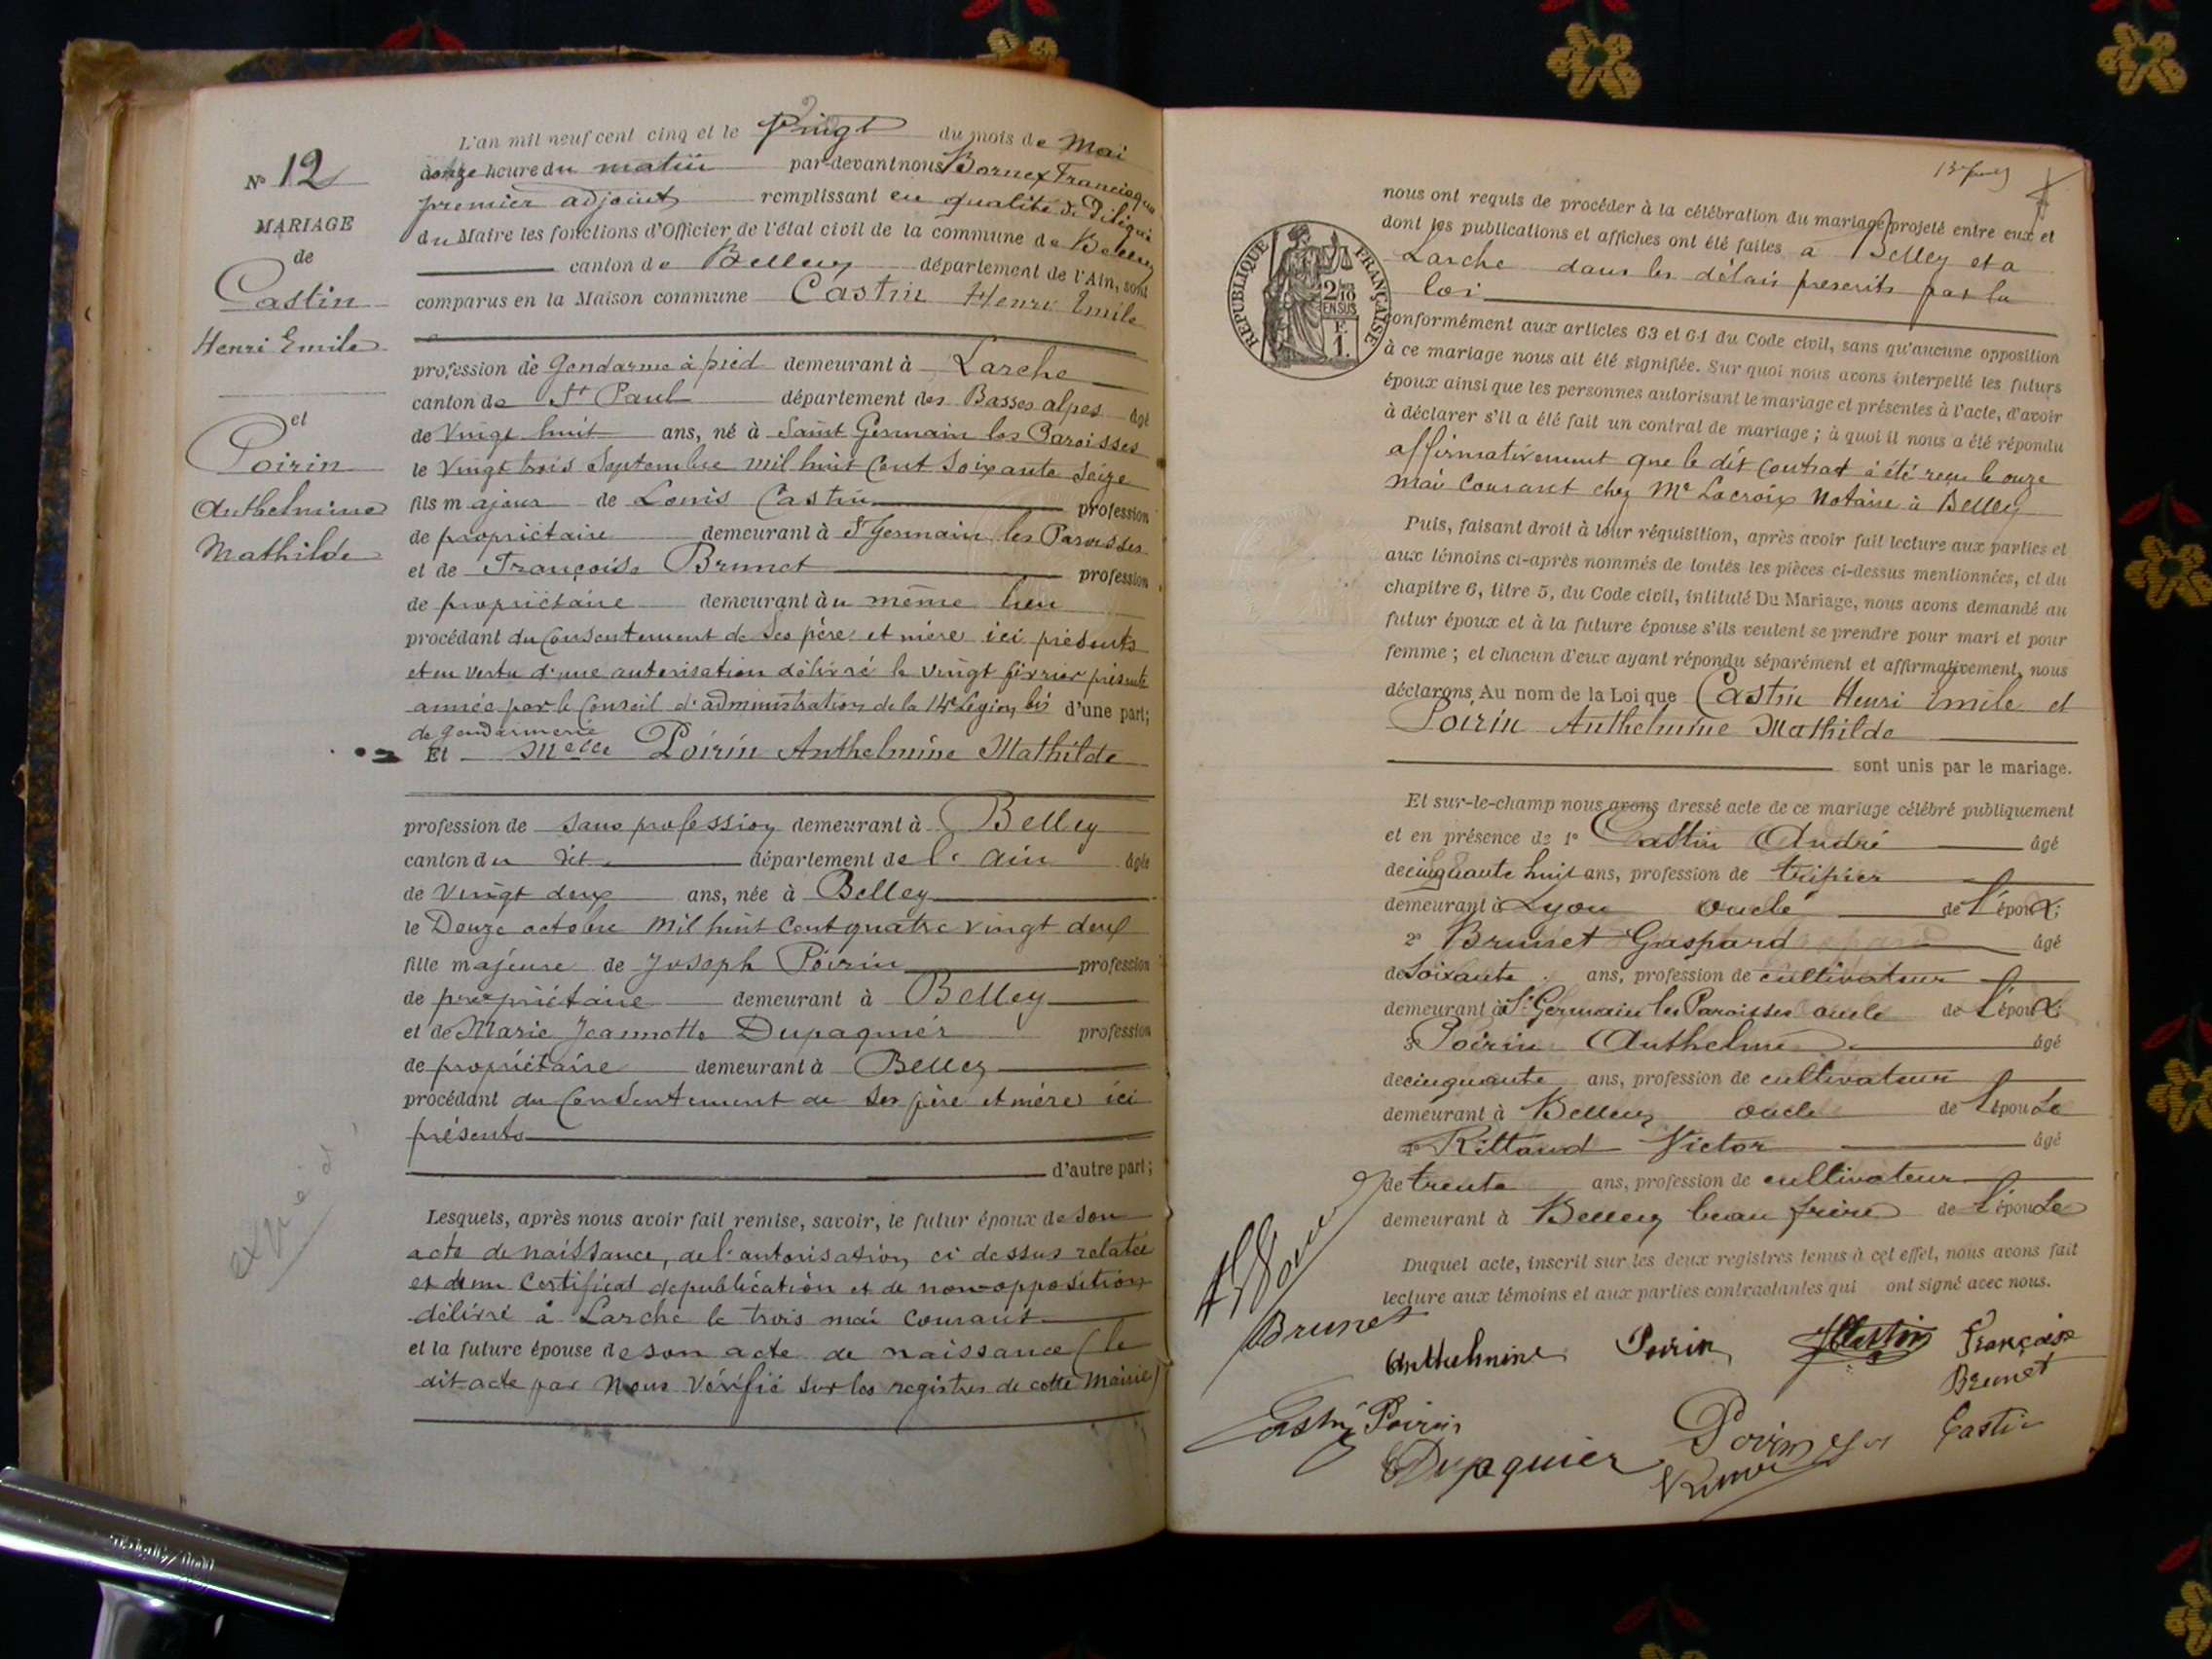 N° 12
MARIAGE
de
Castin
Henri Emile
et
Poirin
Anthelmine
Mathilde
L'an mil neuf cent cinq et le vingt du mois de Mai
heure du matin par-devant nous Bornex Francisque
premier adjoint remplissant en qualité de Délégué
du Maire les fonctions d'Officier de l'état civil de la commune de Belley
canton de Belley département de l'Ain, sont
comparus en la Maison commune Castin Henri Emile
profession de Gendarme à pied demeurant à Larche
canton de St Paul département des Basses alpes âgé
de vingt huit ans, né à Saint Germain les Paroisses
le vingt trois Septembre mil huit cent soixante seize
fils majeur de Louis Castin profession
de propriétaire demeurant à St Germain les Paroisses
et de Françoise Brunet profession
de propriétaire demeurant au même lieu
procédant du consentement de ses père et mère ici présents
et en vertu d'une autorisation délivré le vingt février présente
année par le Conseil d'administration de la 14e Légion bis d'une part;
de gendarmerie
Et Melle Poirin Anthelmine Mathilde
profession de sans profession demeurant à Belley
canton du dit département de l'ain âgée
de vingt deux ans, née à Belley
le Douze octobre mil huit cent quatre vingt deux
fille majeure de Joseph Poirin profession
de propriétaire demeurant à Belley
et de Marie Jeannette Dupaquier profession
de propriétaire demeurant à Belley
procédant du consentement de ses père et mère ici
présents
d'autre part;
Lesquels, après nous avoir fait remise, savoir, le futur époux de son
acte de naissance, de l'autorisation ci dessus relatée
et d'un certificat de publication et de non-opposition
délivré à Larche le trois mai courant
et la future épouse de son acte de naissance (le
dit acte par nous vérifié sur les registres de cette Mairie)
nous ont requis de procéder à la célébration du mariage projeté entre eux et
dont les publications et affiches ont été faites à Belley et à
Larche dans les délais prescrits par la
loi
RÉPUBLIQUE FRANÇAISE
2/10
EN SUS
F.
1.
conformément aux articles 63 et 64 du Code civil, sans qu'aucune opposition
à ce mariage nous ait été signifiée. Sur quoi nous avons interpellé les futurs
époux ainsi que les personnes autorisant le mariage et présentes à l'acte, d'avoir
à déclarer s'il a été fait un contrat de mariage ; à quoi il nous a été répondu
affirmativement que le dit contrat a été reçu le onze
mai courant chez Me Lacroix Notaire à Belley
Puis, faisant droit à leur réquisition, après avoir fait lecture aux parties et
aux témoins ci-après nommés de toutes les pièces ci-dessus mentionnées, et du
chapitre 6, titre 5, du Code civil, intitulé Du Mariage, nous avons demandé au
futur époux et à la future épouse s'ils veulent se prendre pour mari et pour
femme ; et chacun d'eux ayant répondu séparément et affirmativement, nous
déclarons Au nom de la Loi que Castin Henri Emile et
Poirin Anthelmine Mathilde
sont unis par le mariage.
Et sur-le-champ nous avons dressé acte de ce mariage célébré publiquement
et en présence de 1° Castin André âgé
de cinquante huit ans, profession de tripier
demeurant à Lyon oncle de l'époux;
2° Brunet Gaspard âgé
de soixante ans, profession de cultivateur
demeurant à St Germain les Paroisses oncle de l'époux;
3° Poirin Anthelme âgé
de cinquante ans, profession de cultivateur
demeurant à Belley oncle de l'épouse
4° Rittaud Victor âgé
de trente ans, profession de cultivateur
demeurant à Belley beau frère de l'épouse
Duquel acte, inscrit sur les deux registres tenus à cet effet, nous avons fait
lecture aux témoins et aux parties contractantes qui ont signé avec nous.
Brunet
Anthelmine Poirin HCastin Françoise
Brunet
Castin Poirin
Dupaquier Poirin Castin